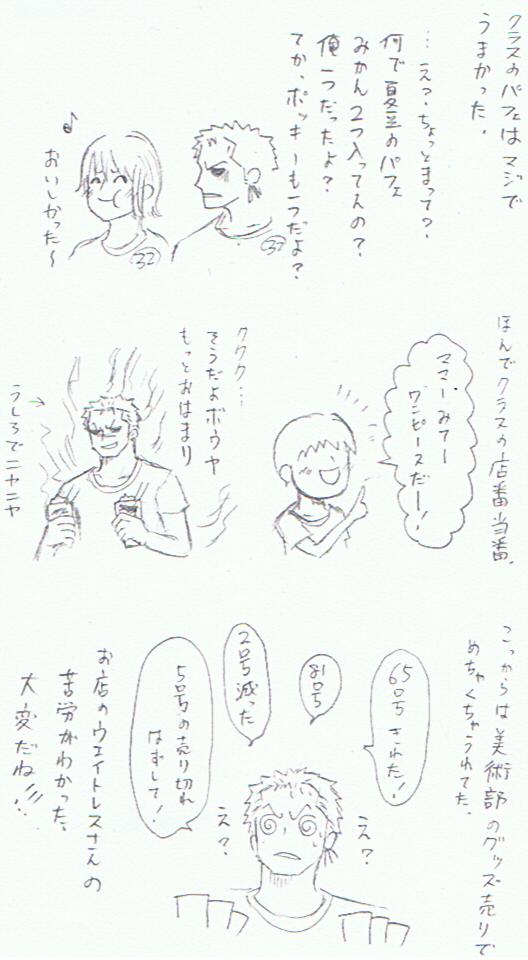 クラスのパフェはマジで
うまかった。
…え？ちょっとまって？
何で夏豆のパフェ
みかん2つ入ってんの？
俺一つだったよ？
てか、ポッキーも一つだよ？
♪
おいしかった～
32
32
ほんでクラスの店番当番。
ママーみてー
ワンピースだー！
ククク…
そうだよボウヤ
もっとおはまり
うしろでニヤニヤ
こっからは美術部のグッズ売りで
めちゃくちゃうれてた。
65号きれた！
お号
2号減った
5号の売り切れ
はずして！
え？
え？
お店のウエイトレスさんの
苦労がわかった。
大変だね!!!